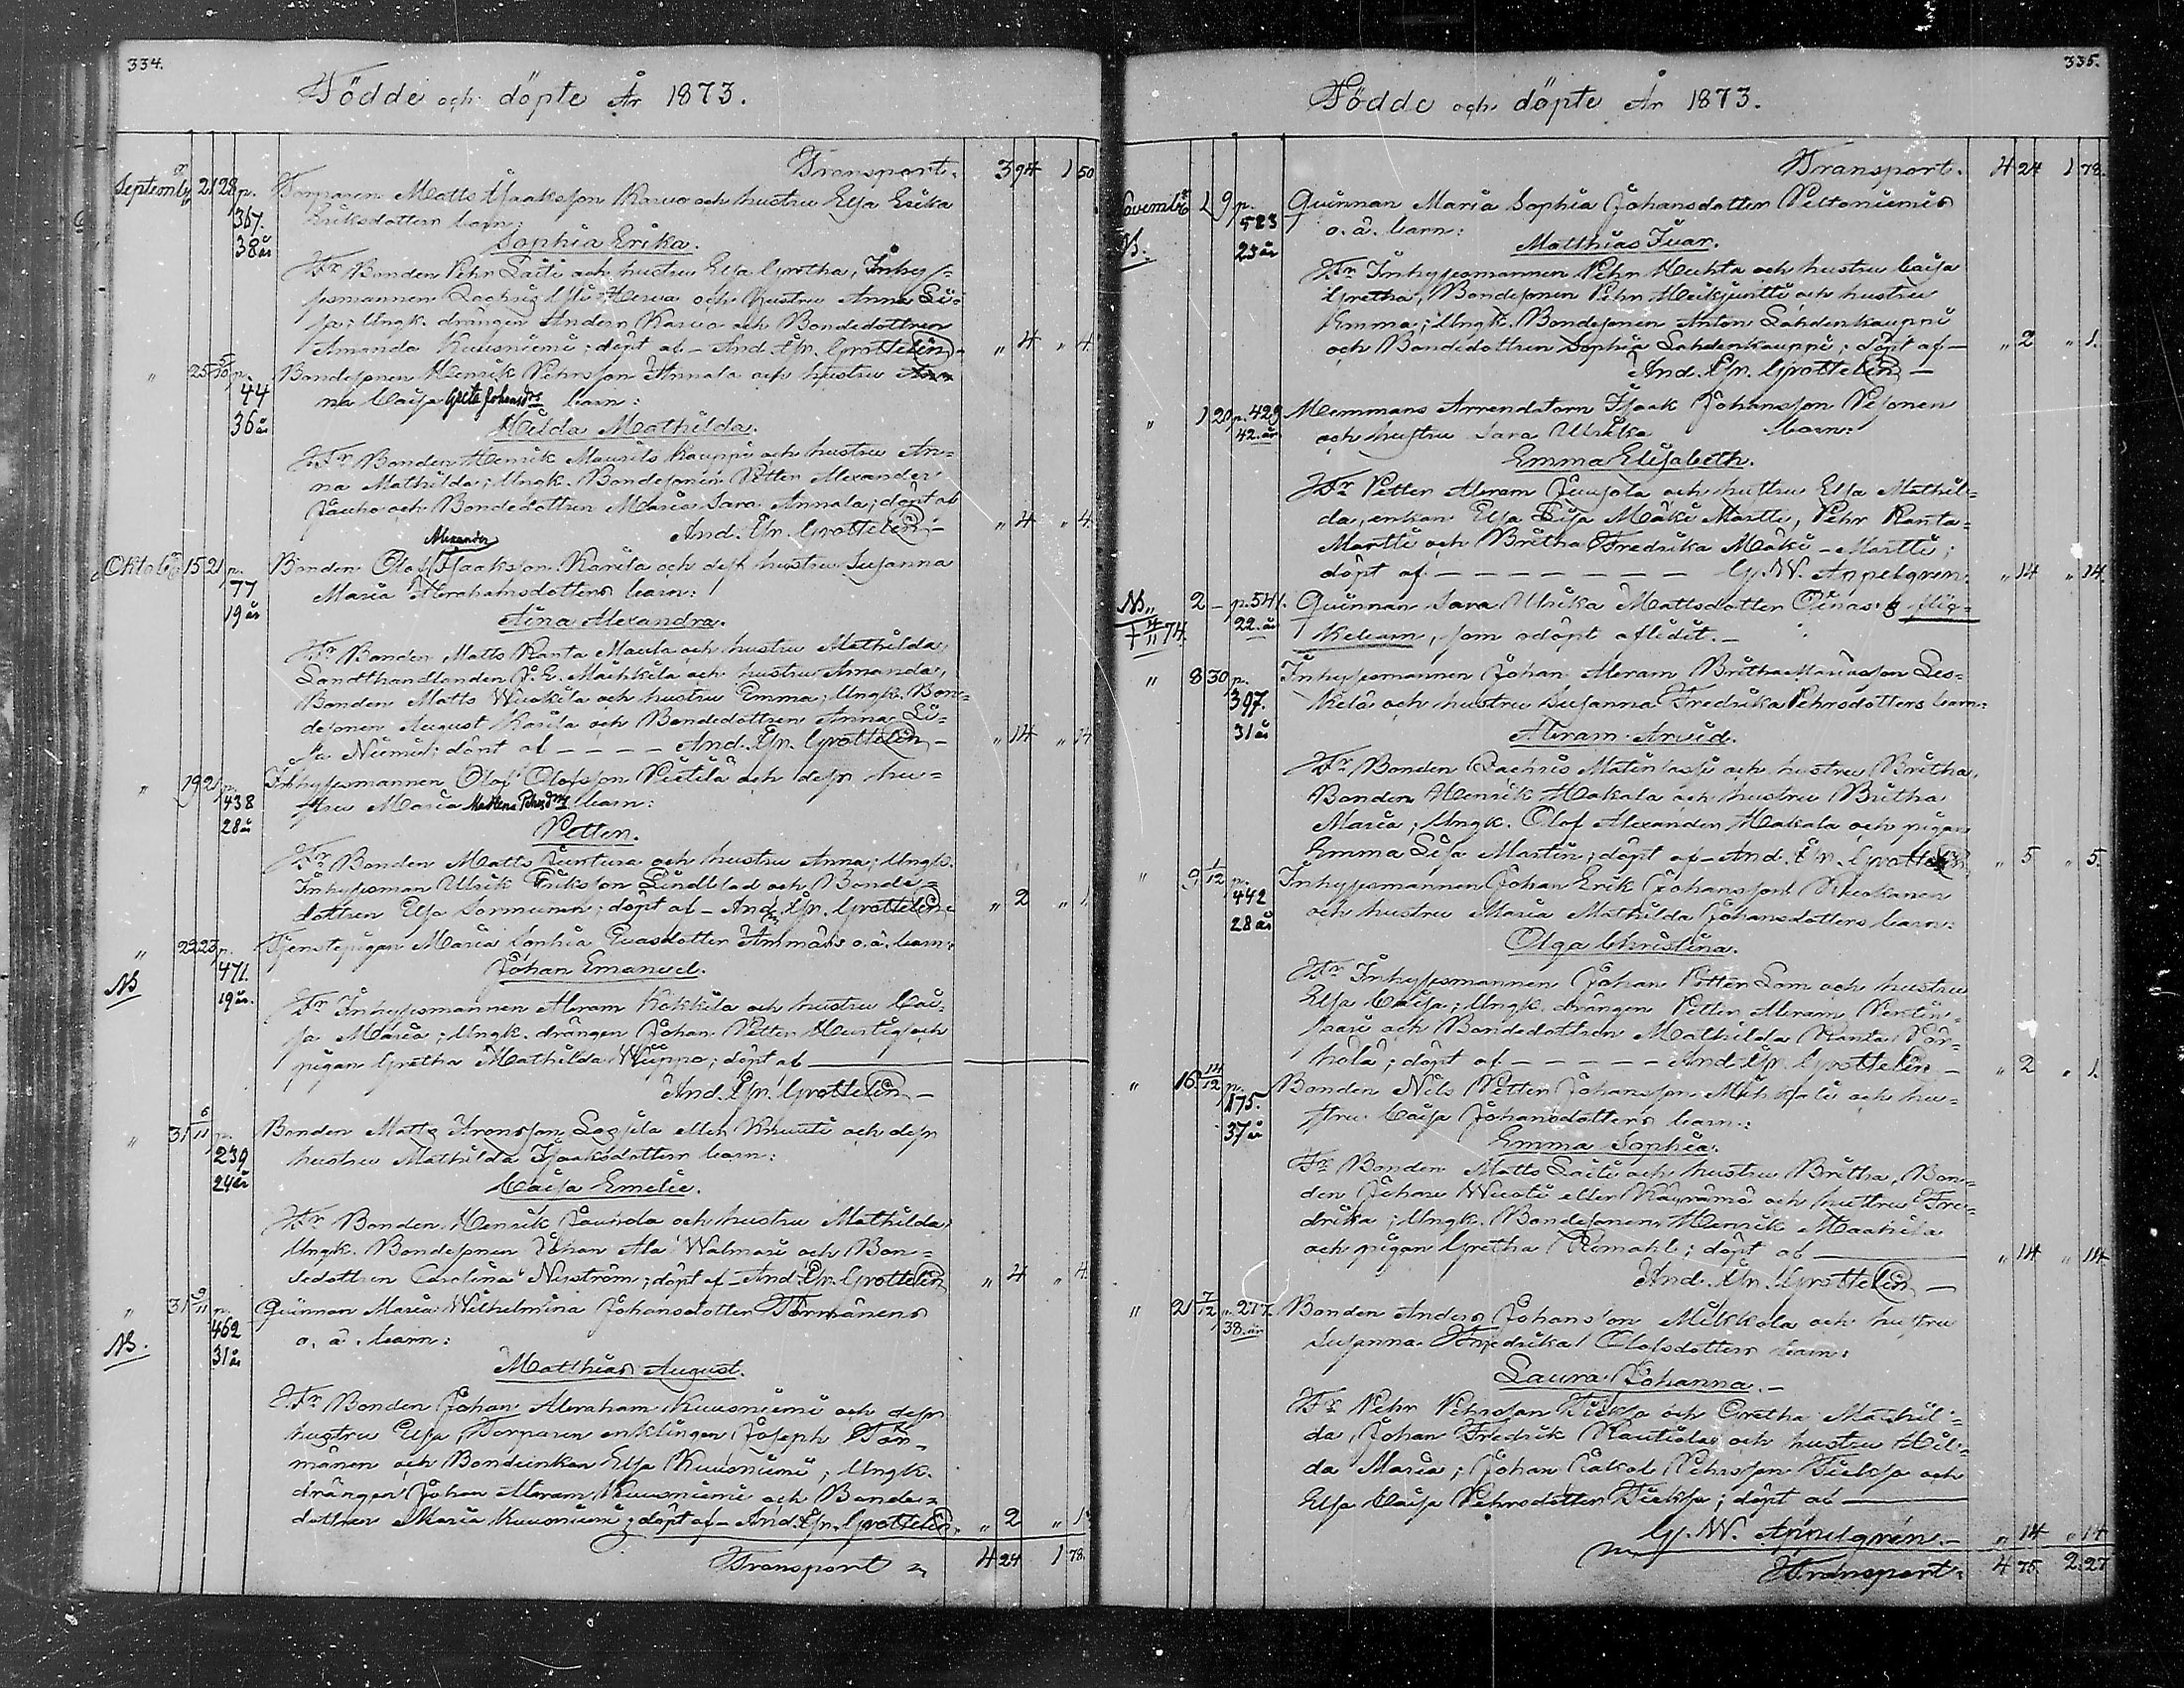 334.
Födde och döpte År 1873.
Transport. 394 1 50
September 21 28 p. 367. 38 år Torparen Matts Isaaksson Karvo och hustru Elsa Erika
Eriksdotters barn:
Sophia Erika.
Fr Bonden Pehr Laiti och hustru Elsa Gretha, Inhys=
smannen och hustru Anna Li=
sa; Ungk. drängen Anders Karvo och Bondedottren
Amanda Kuusniemi; döpt af – And. Gr. Grottelin – „ 4 „ 4
„ 25 5/10 p. 44 36 år Bondesonen Henrik Pehrsson Annala och hustru An
na Caisa Greta Johansdrs barn:
Hilda Mathilda.
Fr Bonden Henrik Maurits Kauppi och hustru An=
na Mathilda; Ungk. Bondesonen Petter Alexander
Jauho och Bondedottren Maria Sara Annala; döpt af
And. Gr. Grottelin – „ 4 „ 4
Alexander
Oktober 15 21 p. 77 19 år Bonden Olof Isaaksson Karila och dess hustru Susanna
Maria Abrahamsdotters barn:
Aina Alexandra.
Fr Bonden Matts Ranta Maula och hustru Mathilda,
Landthandlanden J. E. Maihkila och hustru Amanda,
Bonden Matts Wuoskila och hustru Emma; Ungk. Bon=
desonen August Karila och Bondedottren Anna Li=
sa Niemi; döpt af – – – – And. Gr. Grottelin – „ 14 „ 14
„ 19 21 p. 438 28 år Inhyssmannen Olof Olofsson Viitila och dess hu=
stru Maria Pehrsdrs barn:
Petter.
Fr Bonden Matts Juntura och hustru Anna; Ungk.
Inhyssman Ulrik Eriksson Lindblad och Bonde=
dottren Elsa Sormunen; döpt af – And. Gr. Grottelin „ 2 „ 1.
„ 23 23 p. 471. 19 år. NB Tjenstepigan Maria Sophia Evasdotter Ammäs o. ä. barn:
Johan Emanuel.
Fr Inhyssmannen Abram Kokkila och hustru Cai=
sa Maria; Ungk. drängen Johan Petter Hurtig och
pigan Gretha Mathilda Wiippo; döpt af
And. Gr. Grottelin –
„ 31 6/11 p. 239 24 år Bonden Matts Aronsson Lassila eller Knuuti och dess
hustru Mathilda Isaaksdotters barn:
Caisa Emelie.
Fr Bonden Henrik Jaukola och hustru Mathilda,
Ungk. Bondesonen Johan Ala Walmari och Bon=
dedottren Carolina Nyström; döpt af – And. Gr. Grottelin „ 4 „ 4
„ 31 9/11 p. 462 31 år NB. Quinnan Maria Wilhelmina Johansdotter Törmänens
o. ä. barn:
Matthias August.
Fr Bonden Johan Abraham Kuusniemi och dess
hustru Elsa, Torparen enklingen Joseph Tör=
mänen och Bondenkan Elsa Kuusniemi; Ungk.
drängen Johan Abram Kuusniemi och Bonde=
dottren Maria Kuusniemi; döpt af – And. Gr. Grottelin. „ 2 „ 1.
Transport 4 24 1 78.
335.
Födde och döpte År 1873.
Transport. 4 24 1 78.
November 1 9 p. 583 25 år NB. Quinnan Maria Sophia Johansdotter Peltoniemis
o. ä. barn:
Matthias Ivar.
Fr Inhyssmannen Pehr Huhta och hustru Caisa
Gretha, Bondesonen Pehr Meikjuntti och hustru
Emma; Ungk. Bondesonen Anton Lahdenkauppi
och Bondedottren Sophia Lahdenkauppi; döpt af – „ 2 „ 1.
And. Gr. Grottelin –
„ 1 20 p. 429 42. år Hemmans Arrendatorn Isaak Johansson Vesonen
och hustru Sara Ulrika barn:
Emma Elisabeth.
Fr Petter Abram Juusola och hustru Elsa Mathil=
da, enkan Elsa Lisa Mäki Martti, Pehr Ranta=
Martti och Britha Fredrika Mäki – Martti;
döpt af – – – – – – – G. W. Appelgren. „ 14 „ 14.
NB. „ 2 – p. 541. 22. år Quinnan Sara Ulrika Mattsdotter flic=
kebarn, som odöpt aflidit. –
„ 8 30 p. 397. 31 år Inhyssmannen Johan Abram Britha Mariasson Les=
kelä och hustru Susanna Fredrika Pehrsdotters barn:
Abram Arvid.
Fr Bonden Zachris Matinlassi och hustru Britha,
Bonden Henrik Hakala och hustru Britha
Maria; Ungk. Olof Alexander Hakala och pigan
Emma Lisa Martin; döpt af – And. Gr. Grottelin. „ 5 „ 5.
„ 9 1/12 p. 442 28 år Inhyssmannen Johan Erik Johansson Ruokanen
och hustru Maria Mathilda Johansdotters barn:
Olga Christina.
Fr Inhyssmannen Johan Petter Lom och hustru
Elsa Caisa; Ungk. drängen Petter Abram Pentin=
saari och Bondedottren Mathilda Ranta Pör=
hölä; döpt af – – – – – And. Gr. Grottelin – „ 2 „ 1.
„ 16 14/12 p. 175. 37 år Bonden Nils Petter Johansson och hu=
stru Caisa Johansdotters barn:
Emma Sophia.
Fr Bonden Matts Laiti och hustru Britha, Bon=
den Johan Wuoti eller Käyrämö och hustru Fre=
drika; Ungk. Bondesonen Henrik Maakila
och pigan Gretha Romahl; döpt af „ 14 „ 14
And. Gr. Grottelin –
„ 21 7/12 „ 277. 38. år Bonden Anders Johansson Mikkola och hustru
Susanna Fredrika Olofsdotters barn:
Laura Johanna. –
Fr Pehr Pehrsson Tiekso och Gretha Mathil=
da, Johan Fredrik Rautiola och hustru Hil=
da Maria; Johan Jakob Pehrsson Tiekso och
Elsa Caisa Pehrsdotter Tiekso; döpt af
G. W. Appelgren. – „ 14 „ 14
Transport 4 75. 2 27